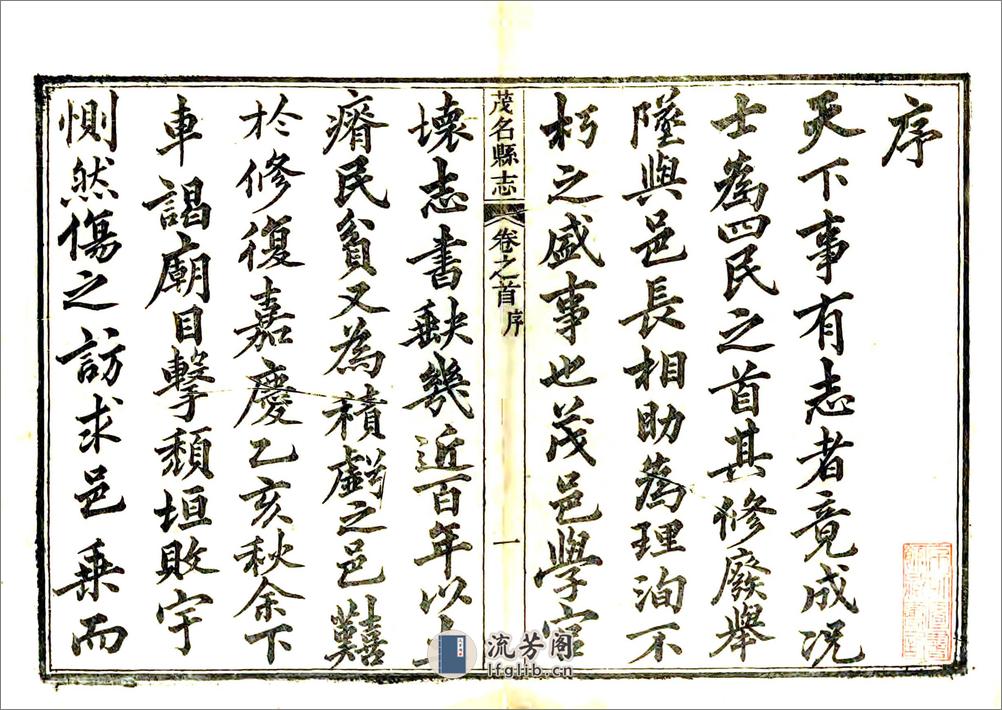 序
天下事有志者竟成况
士為四民之首其修廢舉
墜與邑長相助為理洵不
朽之盛事也茂邑學宮
茂名縣志 卷之首 序 一
壞志書缺幾近百年以土
瘠民貧又為積虧之邑囏
於修復嘉慶乙亥秋余下
車謁廟目擊頹垣敗宇
惻然傷之訪求邑乘而
流芳阁
lfglib.cn